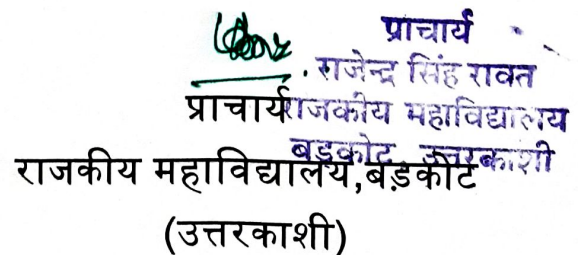 प्राचार्य
राजेन्द्र सिंह रावत
राजकीय महाविद्यालय
बड़कोट, उत्तरकाशी
प्राचार्य
राजकीय महाविद्यालय,बड़कोट
(उत्तरकाशी)